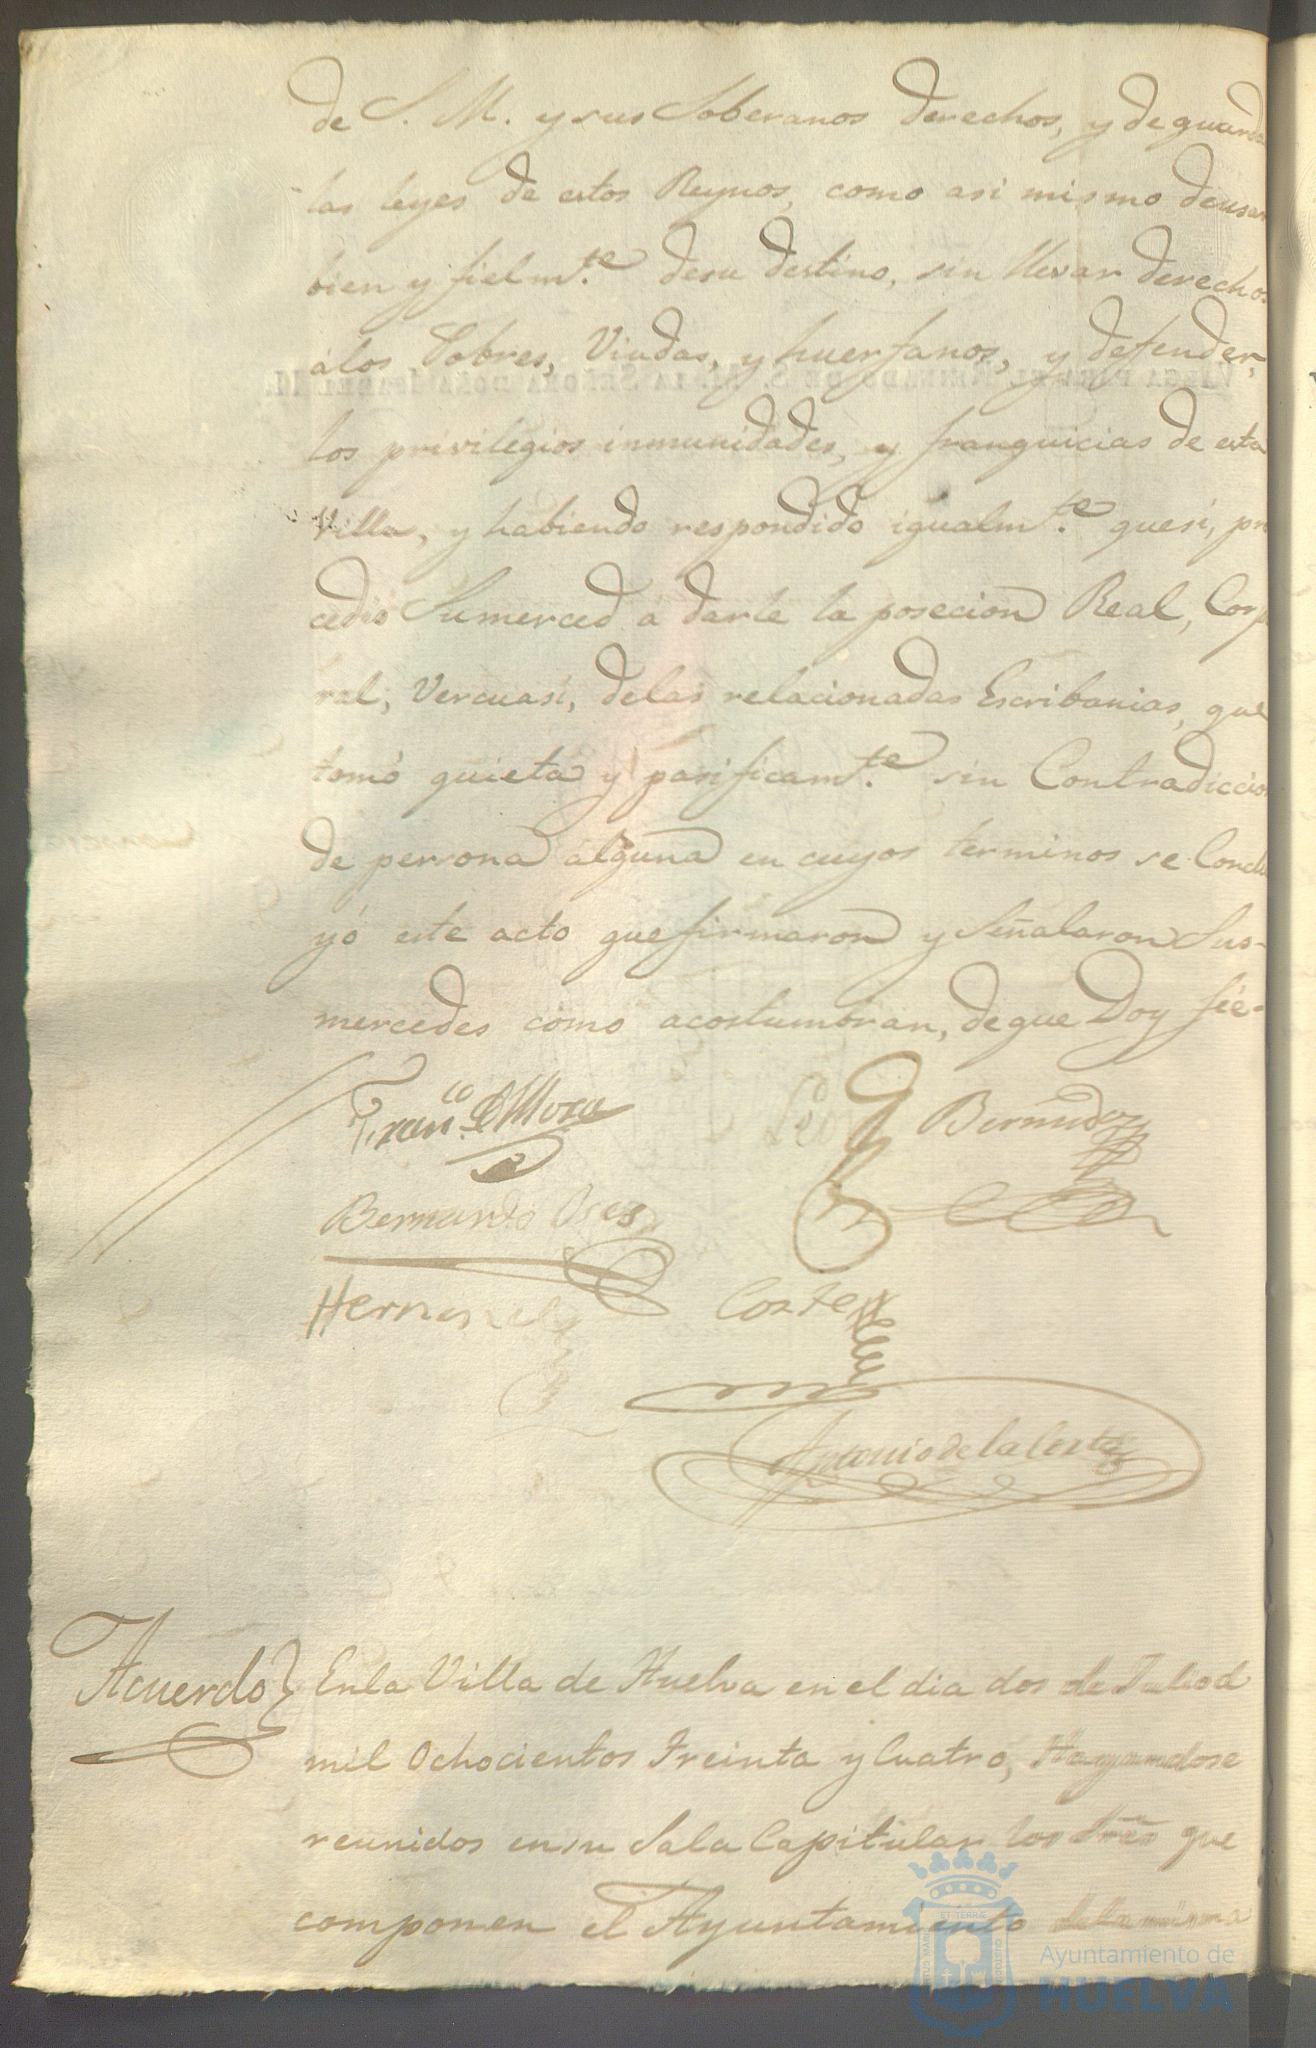 de S. M. y sus Soberanos derechos, y de guarda
las leyes de estos Reynos, como asi mismo deusar
bien y fielm.te desu destino, sin llevar derechos
álos Pobres, Viudas, y huerfanos, y defender,
los privilegios inmunidades, y franquicias de esta
Villa, y habiendo respondido igualm.te quesi, pro
cedió Sumerced á darle la posecion Real, Corpo
ral, Vercuasi, delas relacionadas Escribanias, que
tomó quieta y pasificamt.e sin Contradiccion
de persona alguna en cuyos terminos se Conclu
yó este acto que firmaron y Señalaron Sus-
mercedes como acostumbran, deque Doy fée-
Fran.co de Mora
Bermudez
Bernardo
Cortes
Antonio de la Corte
Acuerdo
Enla Villa de Huelva en el dia dos de Julio d
mil Ochocientos Treinta y Cuatro, Hayandose
reunidos ensu Sala Capitular los Sres que
componen el Ayuntamiento dela misma
Ayuntamiento de
HUELVA